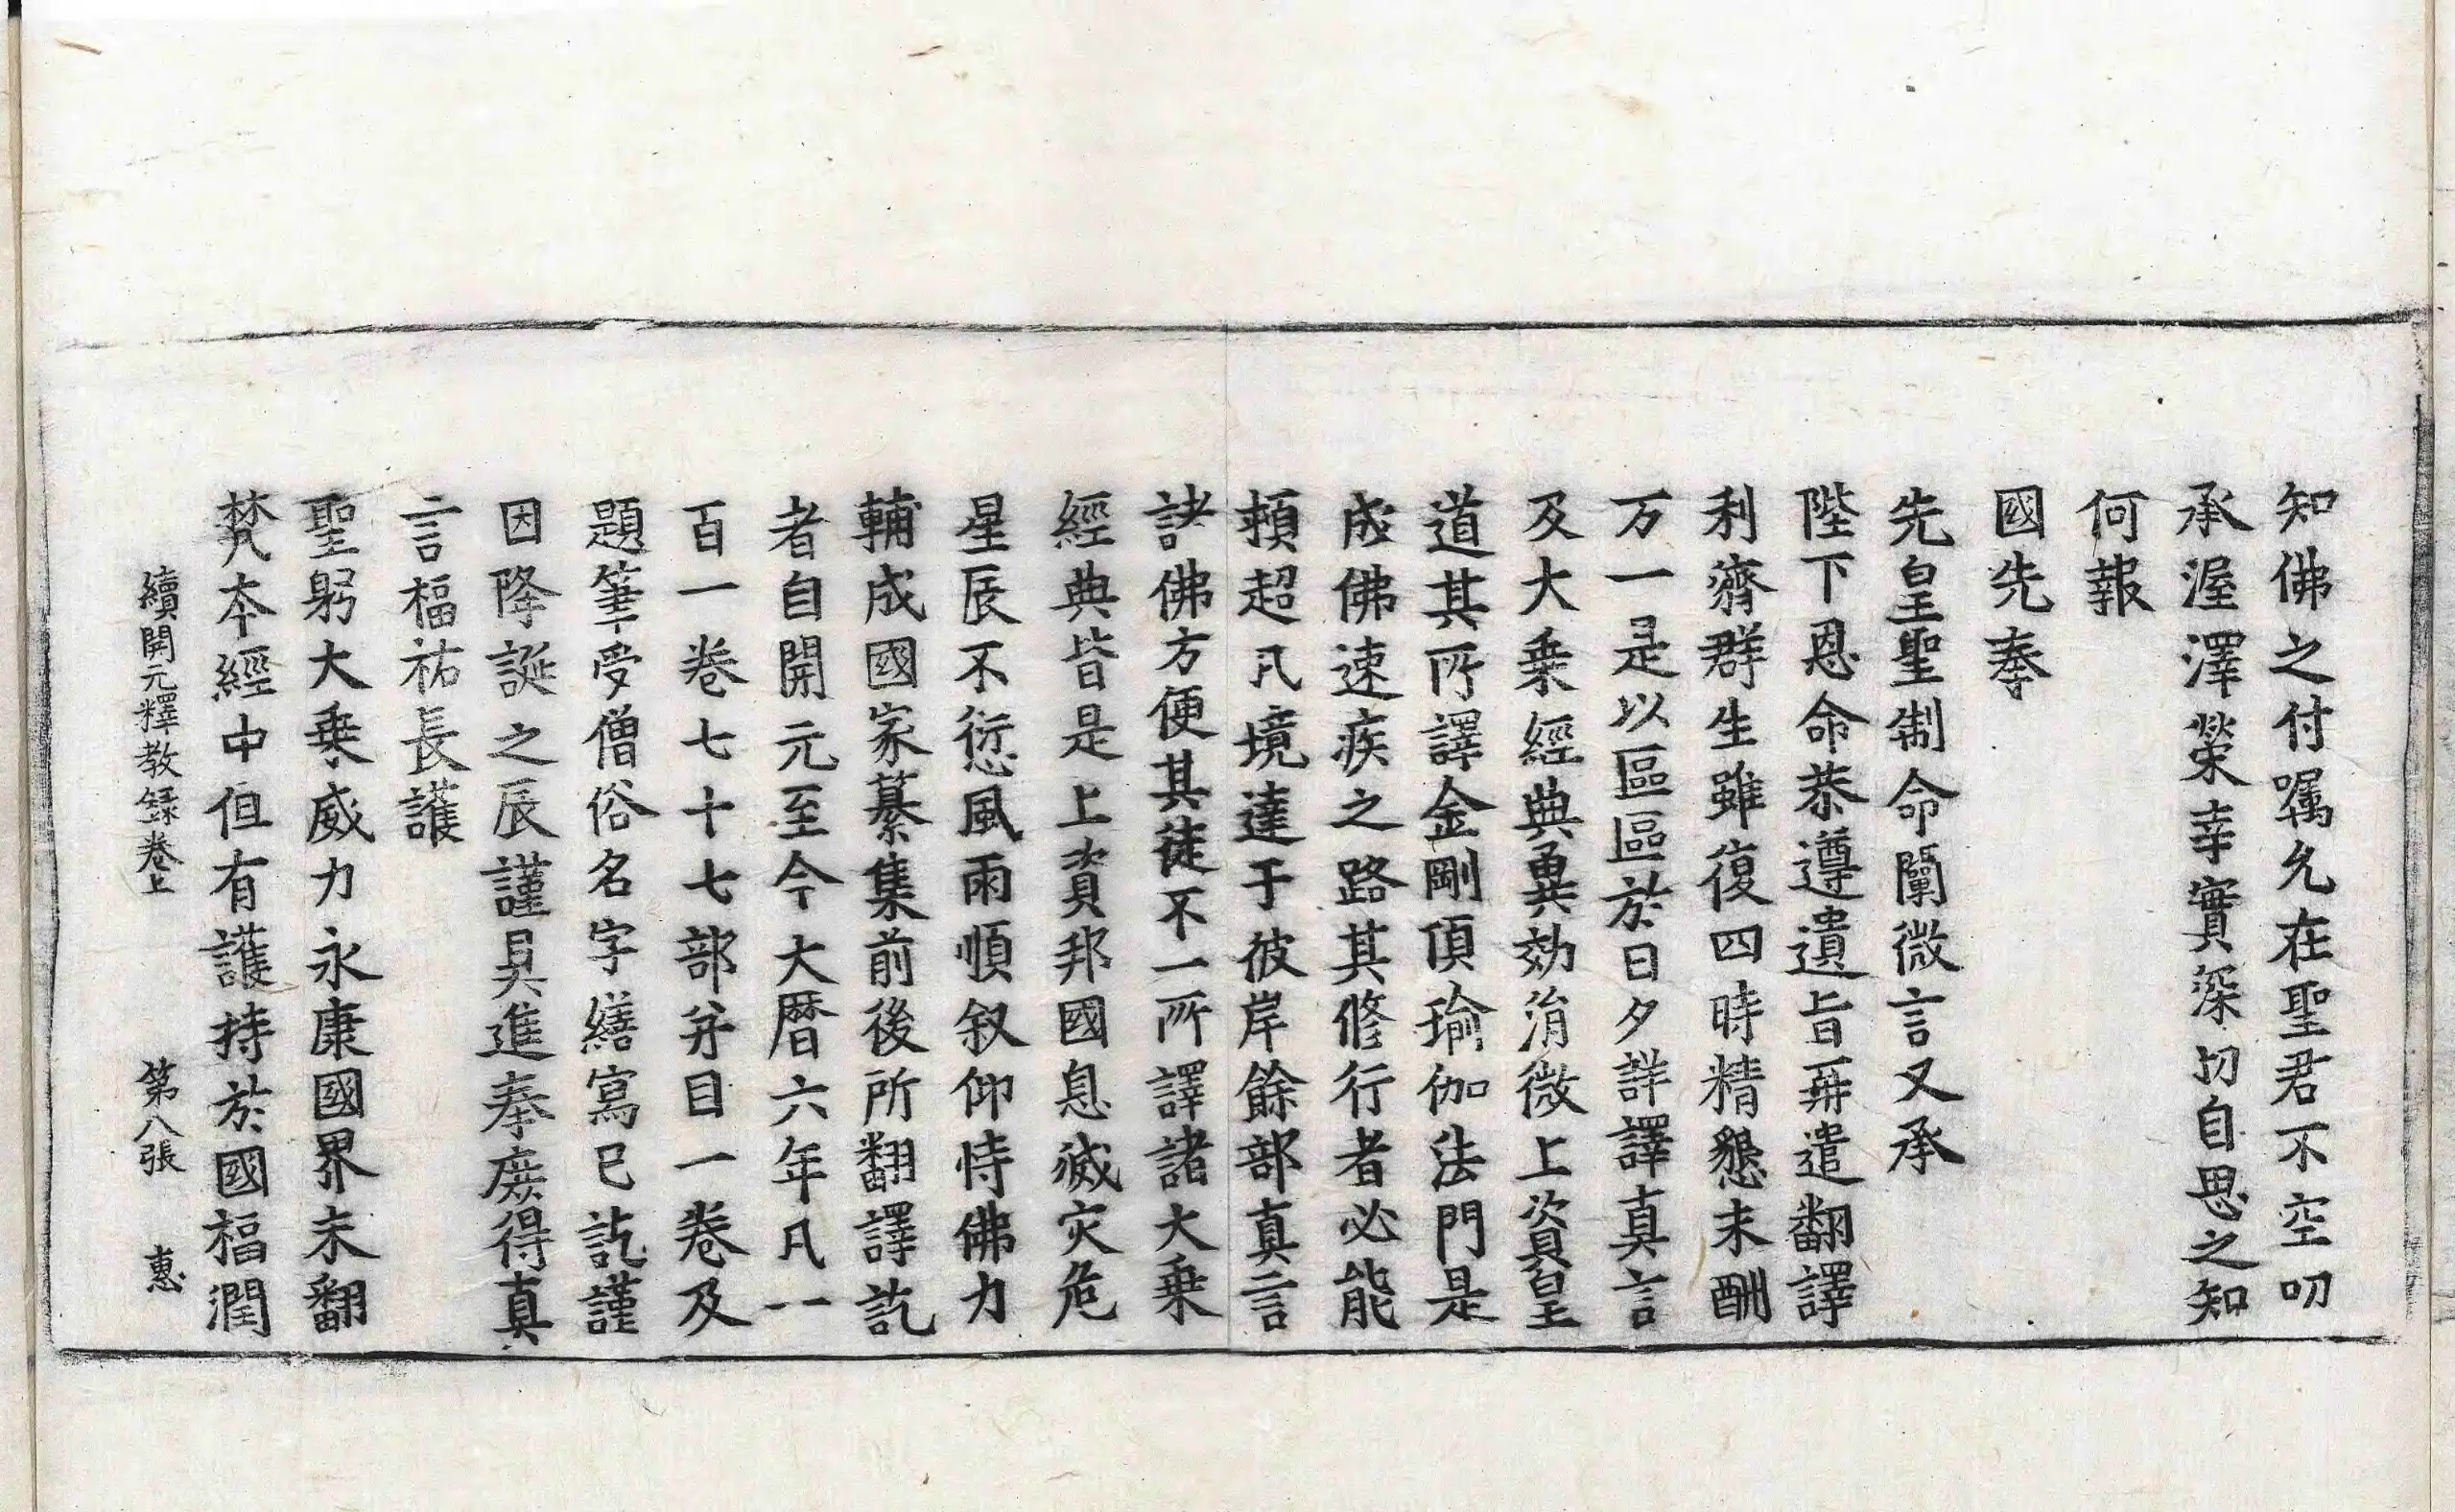 知佛之付囑允在聖君不空叨
承渥澤榮幸實深切自思之知
何報
國先奉
先皇聖制命闡微言又承
陛下恩命恭遵遺旨再遣翻譯
利濟群生雖復四時精懇未酬
万一是以區區於日夕詳譯真言
及大乗經典冀効涓微上資皇
道其所譯金剛頂瑜伽法門是
成佛速疾之路其修行者必能
頓超凡境達于彼岸餘部真言
諸佛方便其徒不一所譯諸大乗
經典皆是上資邦國息滅灾危
星辰不愆風雨順叙仰恃佛力
輔成國家纂集前後所翻譯訖
者自開元至今大曆六年凡一
百一卷七十七部并目一卷及
題筆受僧俗名字繕寫已訖謹
因降誕之辰謹具進奉庶得真
言福祐長護
聖躬大乗威力永康國界未翻
梵本經中但有護持於國福潤
續開元釋教録卷上 第八張 惠